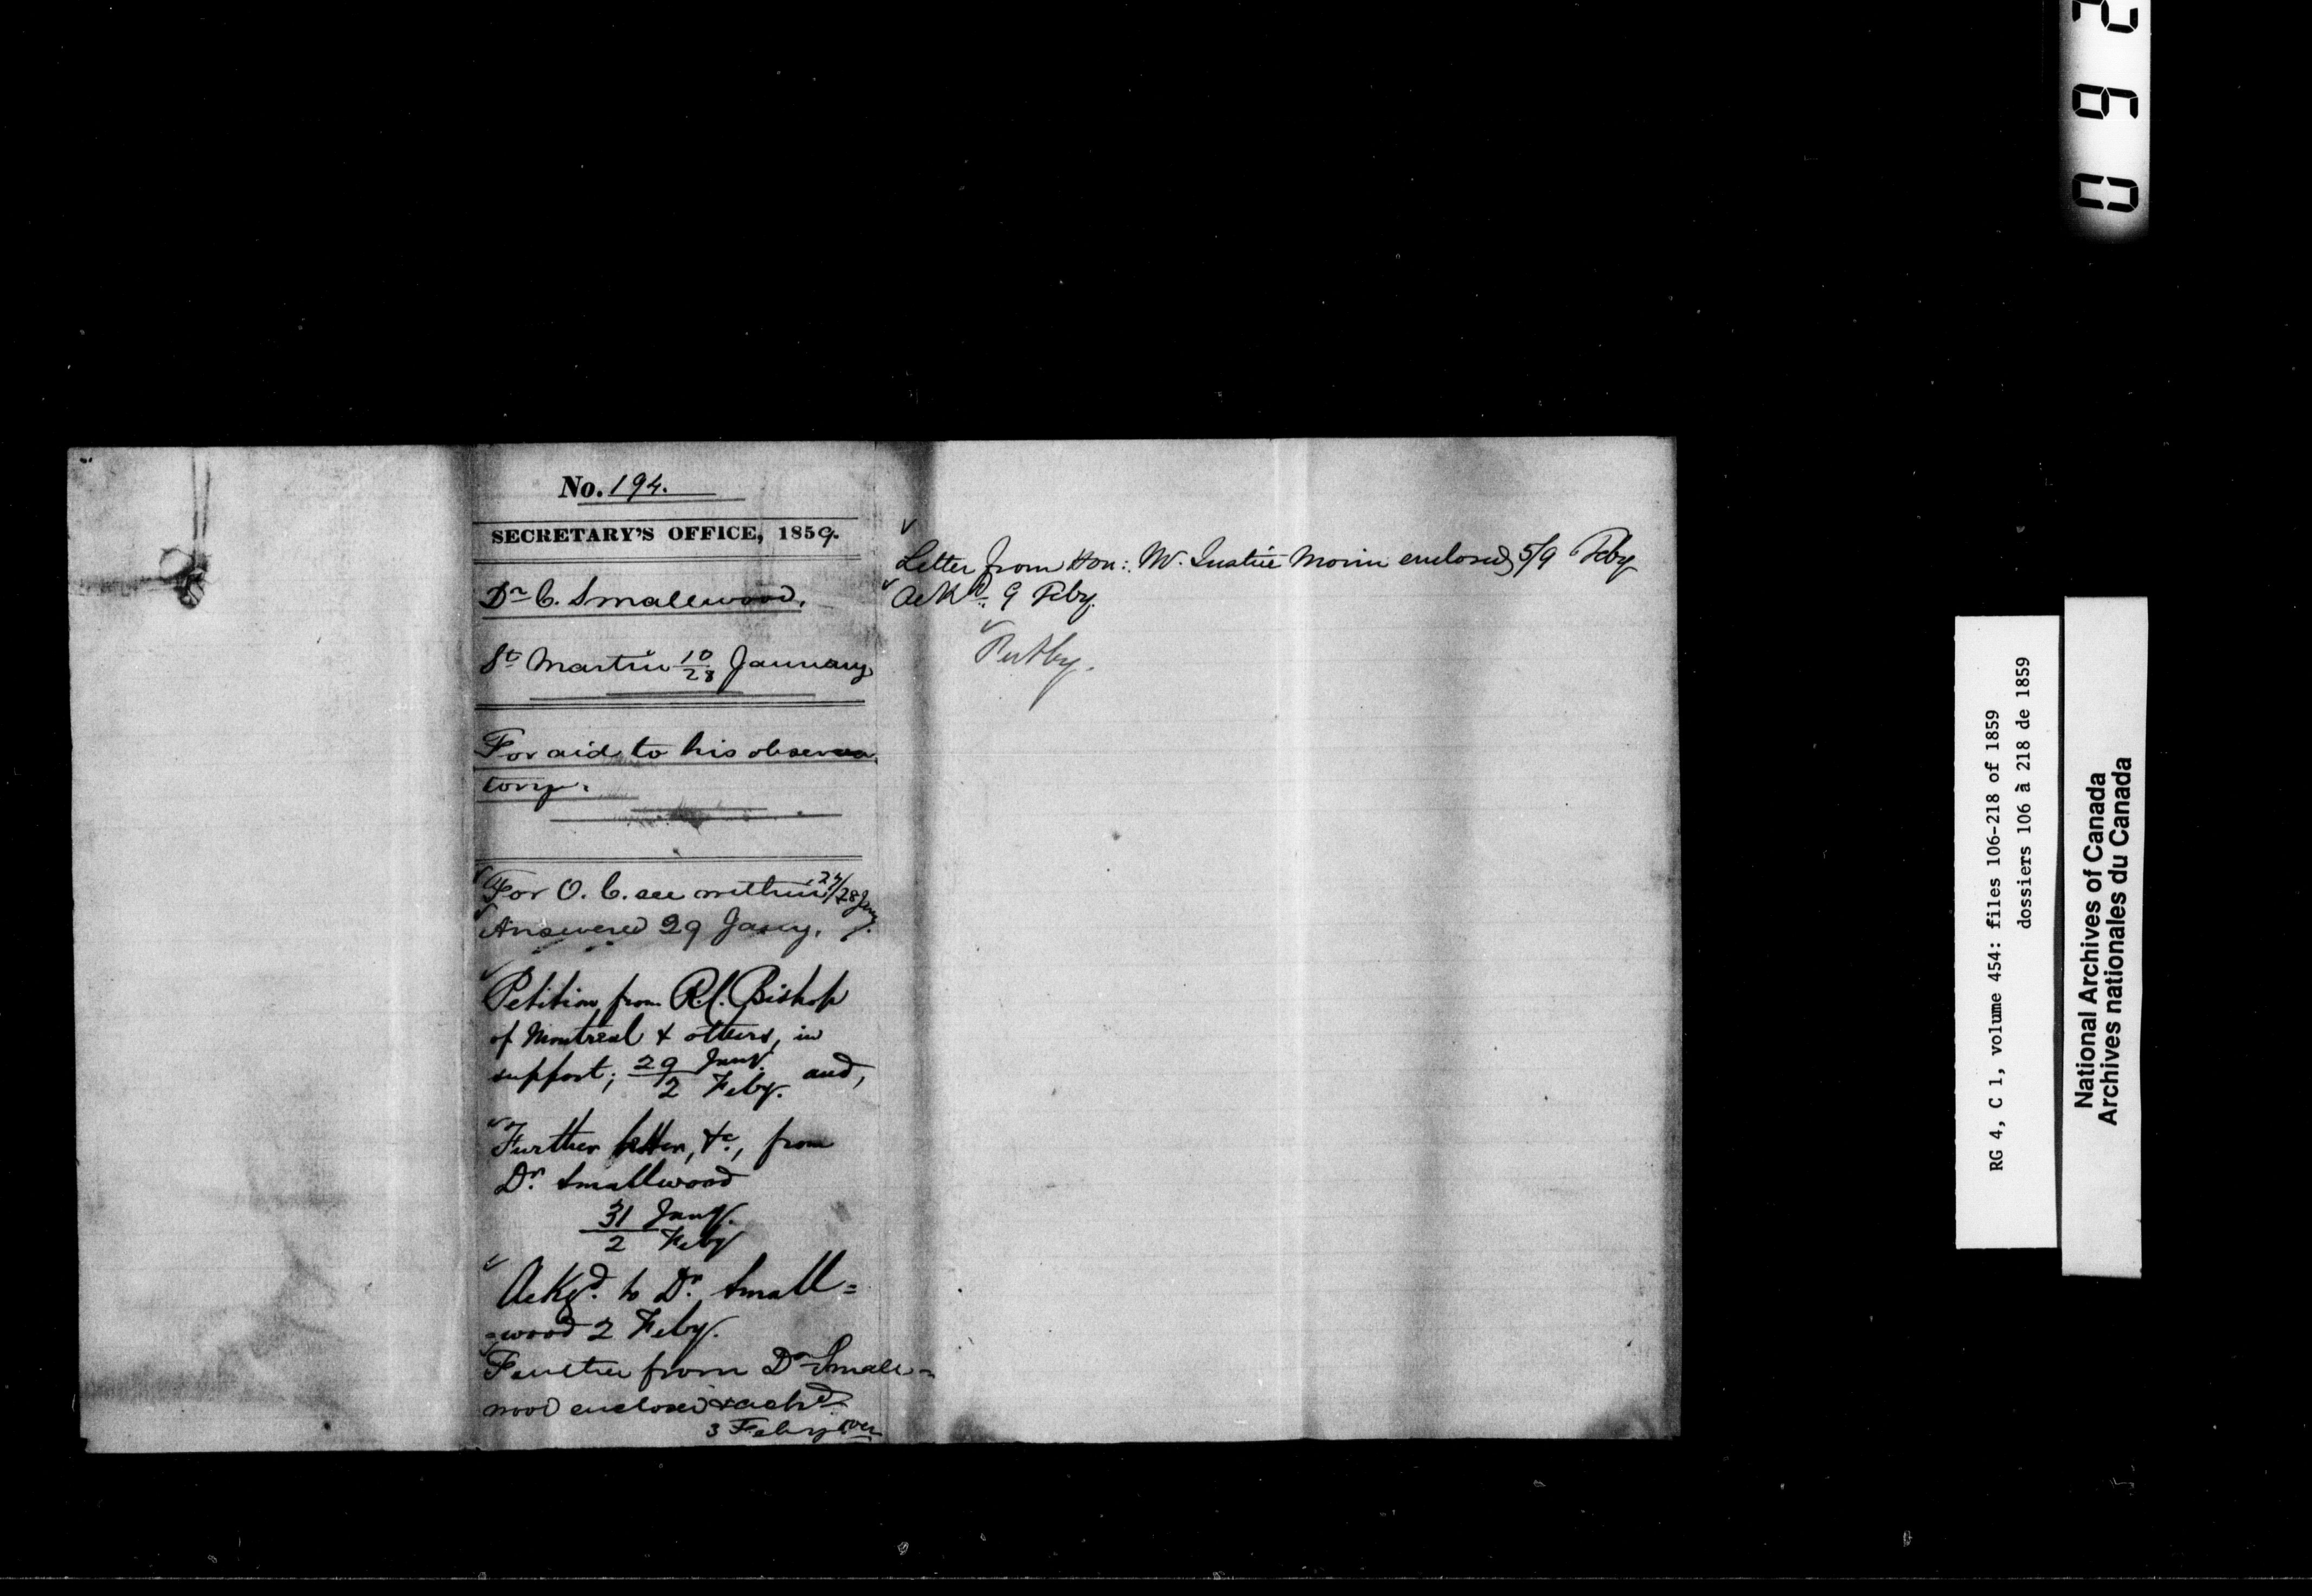 No. 194.
SECRETARY'S OFFICE, 1859.
Dr C. Smallwood.
St Martin 10/28 January
For aid to his observa
tory.
For O. C. see within 27/28 Jany
Answered 29 Jany.
Petition from R. C. Bishop
of Montreal & others, in
support; 29 Jany. / 2 Feby. and,
Further letter, &c., from
Dr. Smallwood
31 Jany.
2 Feby
Ackgd. to Dr. Small=
=wood 2 Feby.
Further from Dr Small-
wood enclosed & ackd
3 Feby over
Letter from Hon: Mr. Justice Morin enclosed 5/9 Feby
Ackd. 9 Feby.
RG 4, C 1, volume 454: files 106-218 of 1859
dossiers 106 à 218 de 1859
National Archives of Canada
Archives nationales du Canada
0 6 2